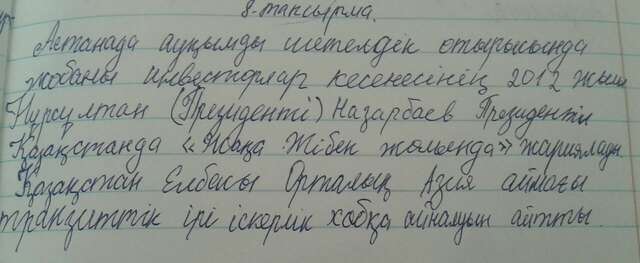 8-тапсырма.
Астанада ауқымды шетелдік отырысында
жобаны инвесторлар кесенесінің 2012 жыл
Нұрсұлтан (Президенті) Назарбаев Президенті
Қазақстанда «Жаңа Жібек жолында» жариялады
Қазақстан Елбасы Орталық Азия аймағы
транзиттік ірі іскерлік хобқа айналуын айтты.